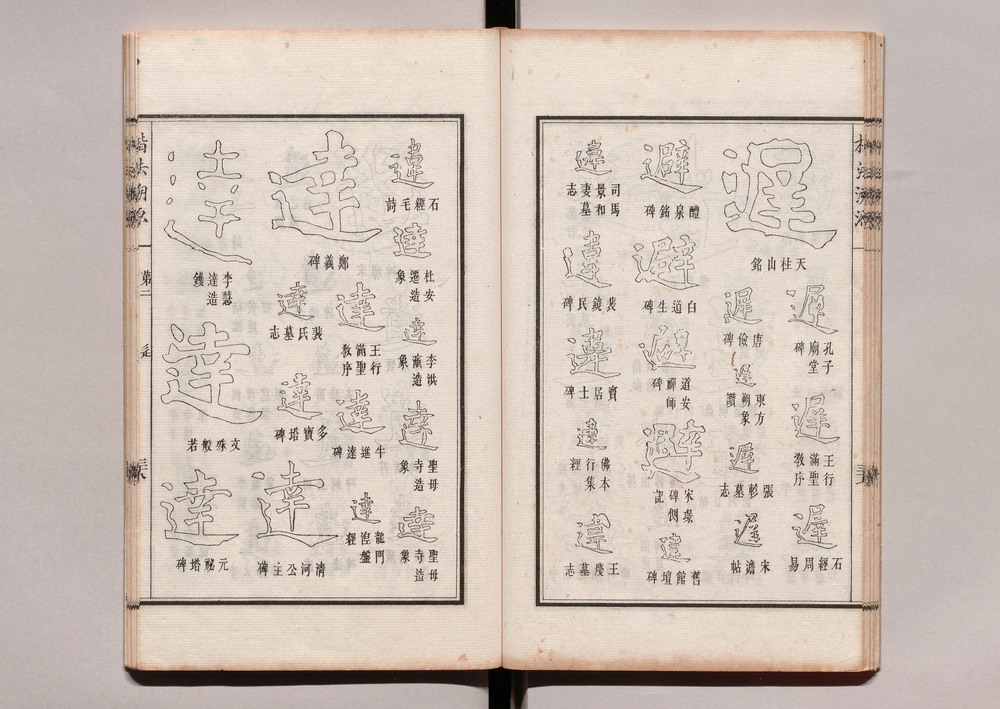 遲
天柱山銘
遲
孔子廟堂碑
遲
王行滿聖教序
遲
石經周易
遲
唐儉碑
遲
東方朔象讚
遲
張軫墓志
遲
宋儋帖
避
醴泉銘碑
避
白道生碑
避
道安禪師碑
避
宋璟碑側記
避
舊館壇碑
違
司馬景和妻墓志
違
裴鏡民碑
違
竇居士碑
違
佛本行集經
違
王慶墓志
違
石經毛詩
達
杜安遷造象
達
李洪演造象
達
聖母寺造象
達
聖母寺造象
達
鄭義碑
達
王行滿聖教序
達
裴氏墓志
達
牛進達碑
達
多寶塔碑
達
龍門湼槃經
達
清河公主碑
達
李慧達造
達
文殊般若
達
元祕塔碑
楷法溯源
第二